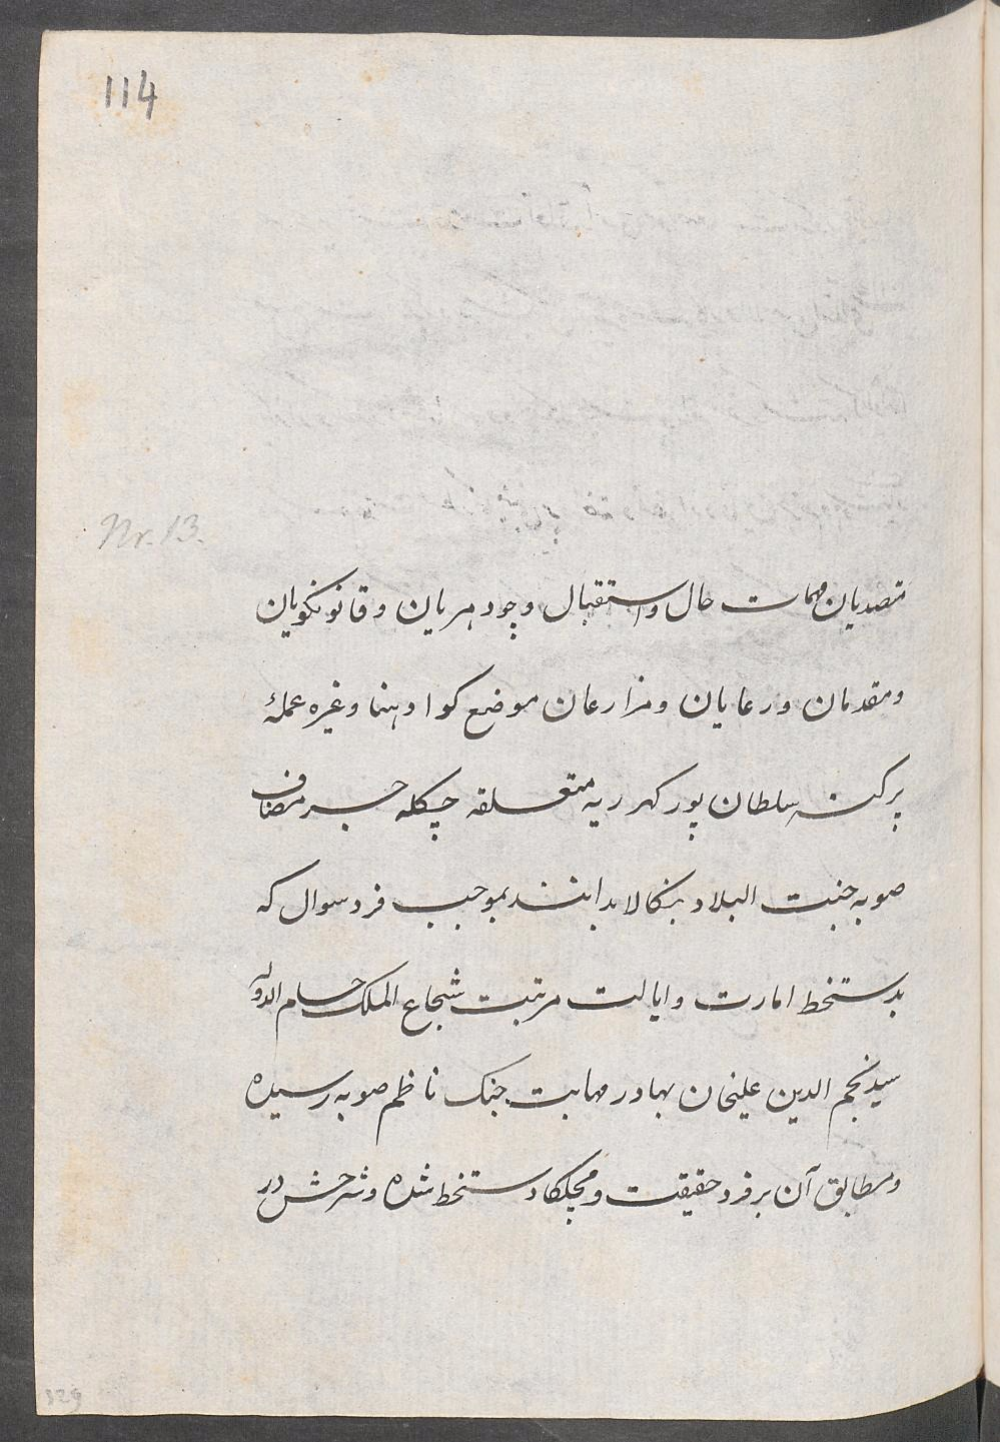 114
Nr. 13.
متصدیان مهمات حال و استقبال و چودهریان و قانونکویان
و مقدمان و رعایان و مزارعان موضع کوادهنما وغیره عملهٔ
پرکنه سلطان پور کهرریه متعلقه چکله جسر مضاف
صوبه جنت البلاد بنکالا بدانند بموجب فرد سوال که
بدستخط امارت و ایالت مرتبت شجاع الملک حسام الدوله
سید نجم الدین علیخان بهادر مهابت جنک ناظم صوبه رسیده
و مطابق آن بر فرد حقیقت و مچلکا دستخط شده و شرحش در
329